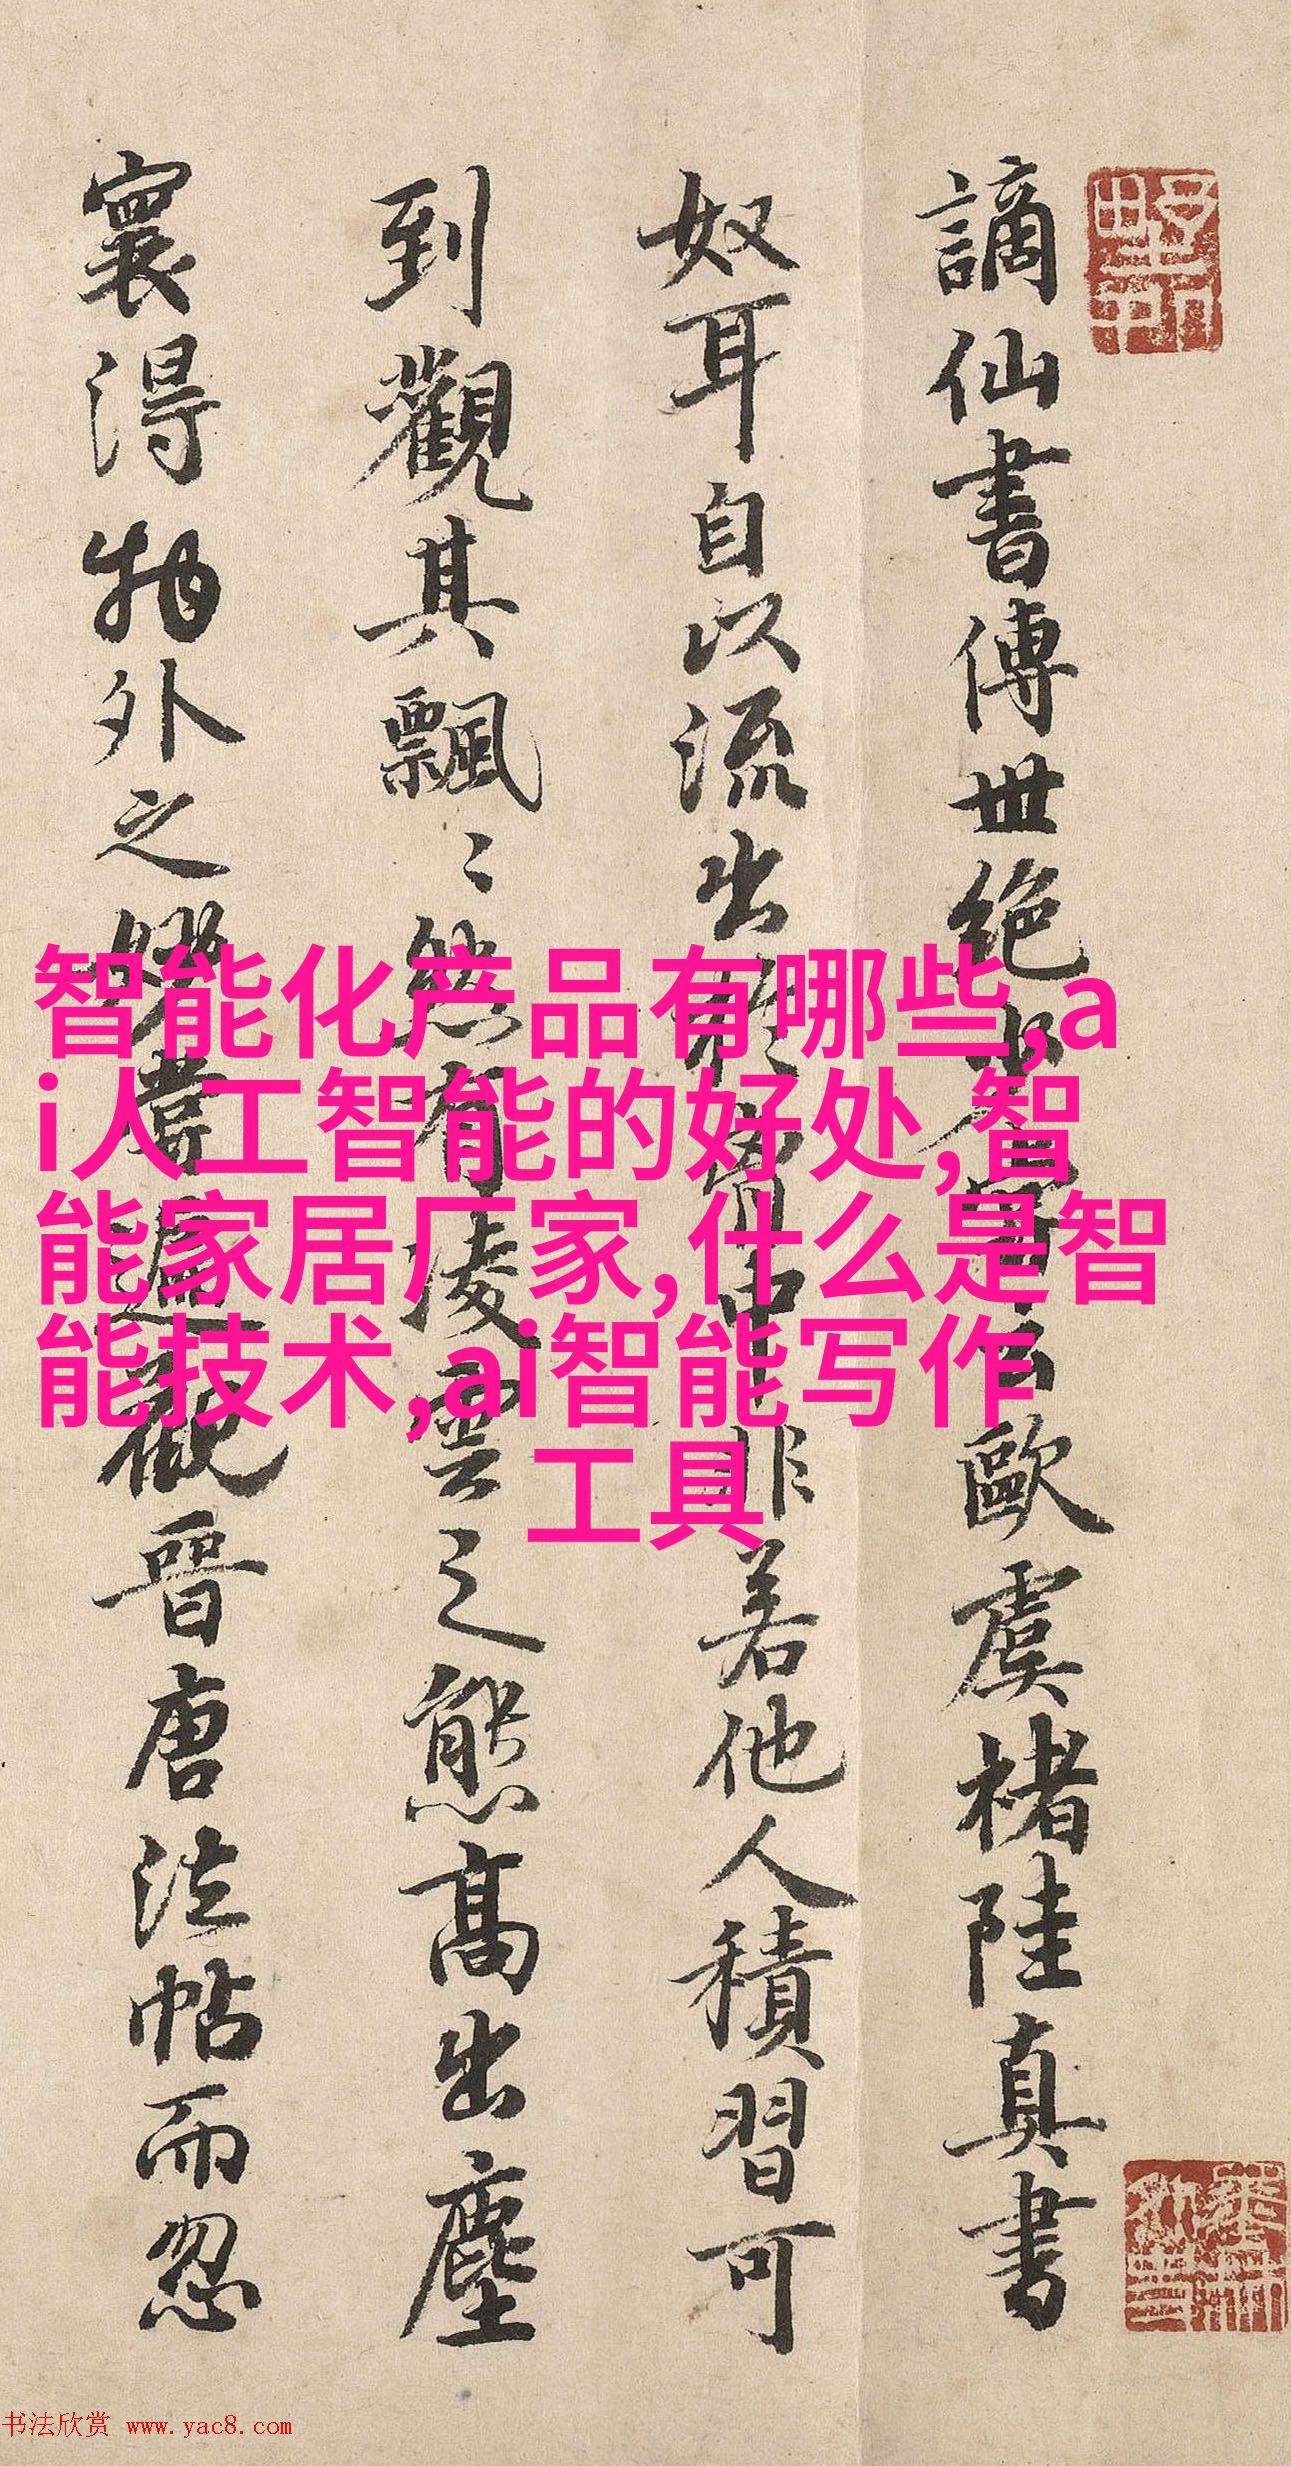 謫仙書傳世絕少嘗云歐虞褚陸真書
奴耳自以流出於胷中非若他人積習可
到觀其飄〻然有凌雲之態高出塵
寰得物外之妙嘗遍觀晉唐法帖而忽
智能化产品有哪些,a
i人工智能的好处,智
能家居厂家,什么是智
能技术,ai智能写作
工具
书法欣赏 www.yac8.com